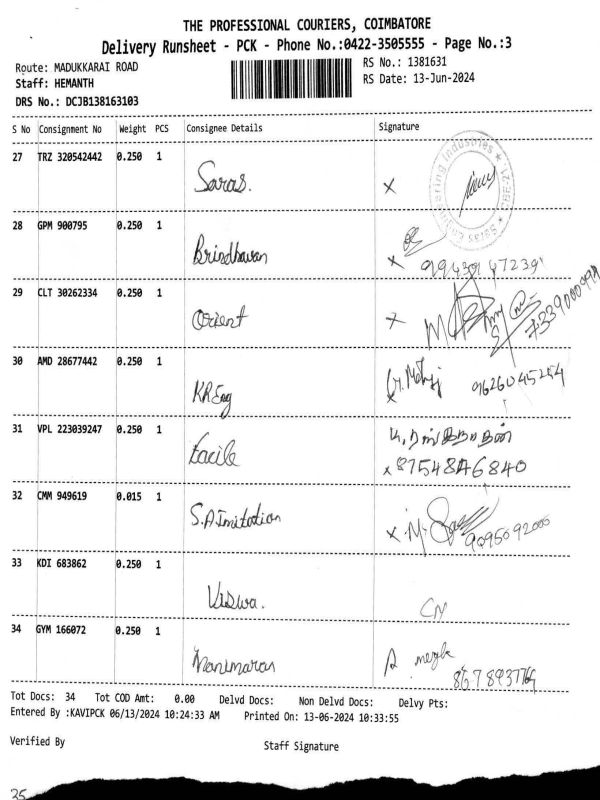 THE PROFESSIONAL COURIERS, COIMBATORE
Delivery Runsheet - PCK - Phone No.:0422-3505555 - Page No.:3
Route: MADUKKARAI ROAD
RS No.: 1381631
Staff: HEMANTH
RS Date: 13-Jun-2024
DRS No.: DCJB138163103
S No Consignment No Weight PCS Consignee Details Signature
27 TRZ 320542442 0.250 1
Saras. X
28 GPM 900795 0.250 1
Brindhavan X
29 CLT 30262334 0.250 1
Orient X
30 AMD 28677442 0.250 1
KR Eng 9626045254
31 VPL 223039247 0.250 1
Facile x
32 CMM 949619 0.015 1
S.A Imitation X
9095092000
33 KDI 683862 0.250 1
Viswa.
34 GYM 166072 0.250 1
Manimaran
Tot Docs: 34 Tot COD Amt: 0.00 Delvd Docs: Non Delvd Docs: Delvy Pts:
Entered By :KAVIPCK 06/13/2024 10:24:33 AM Printed On: 13-06-2024 10:33:55
Verified By Staff Signature
35